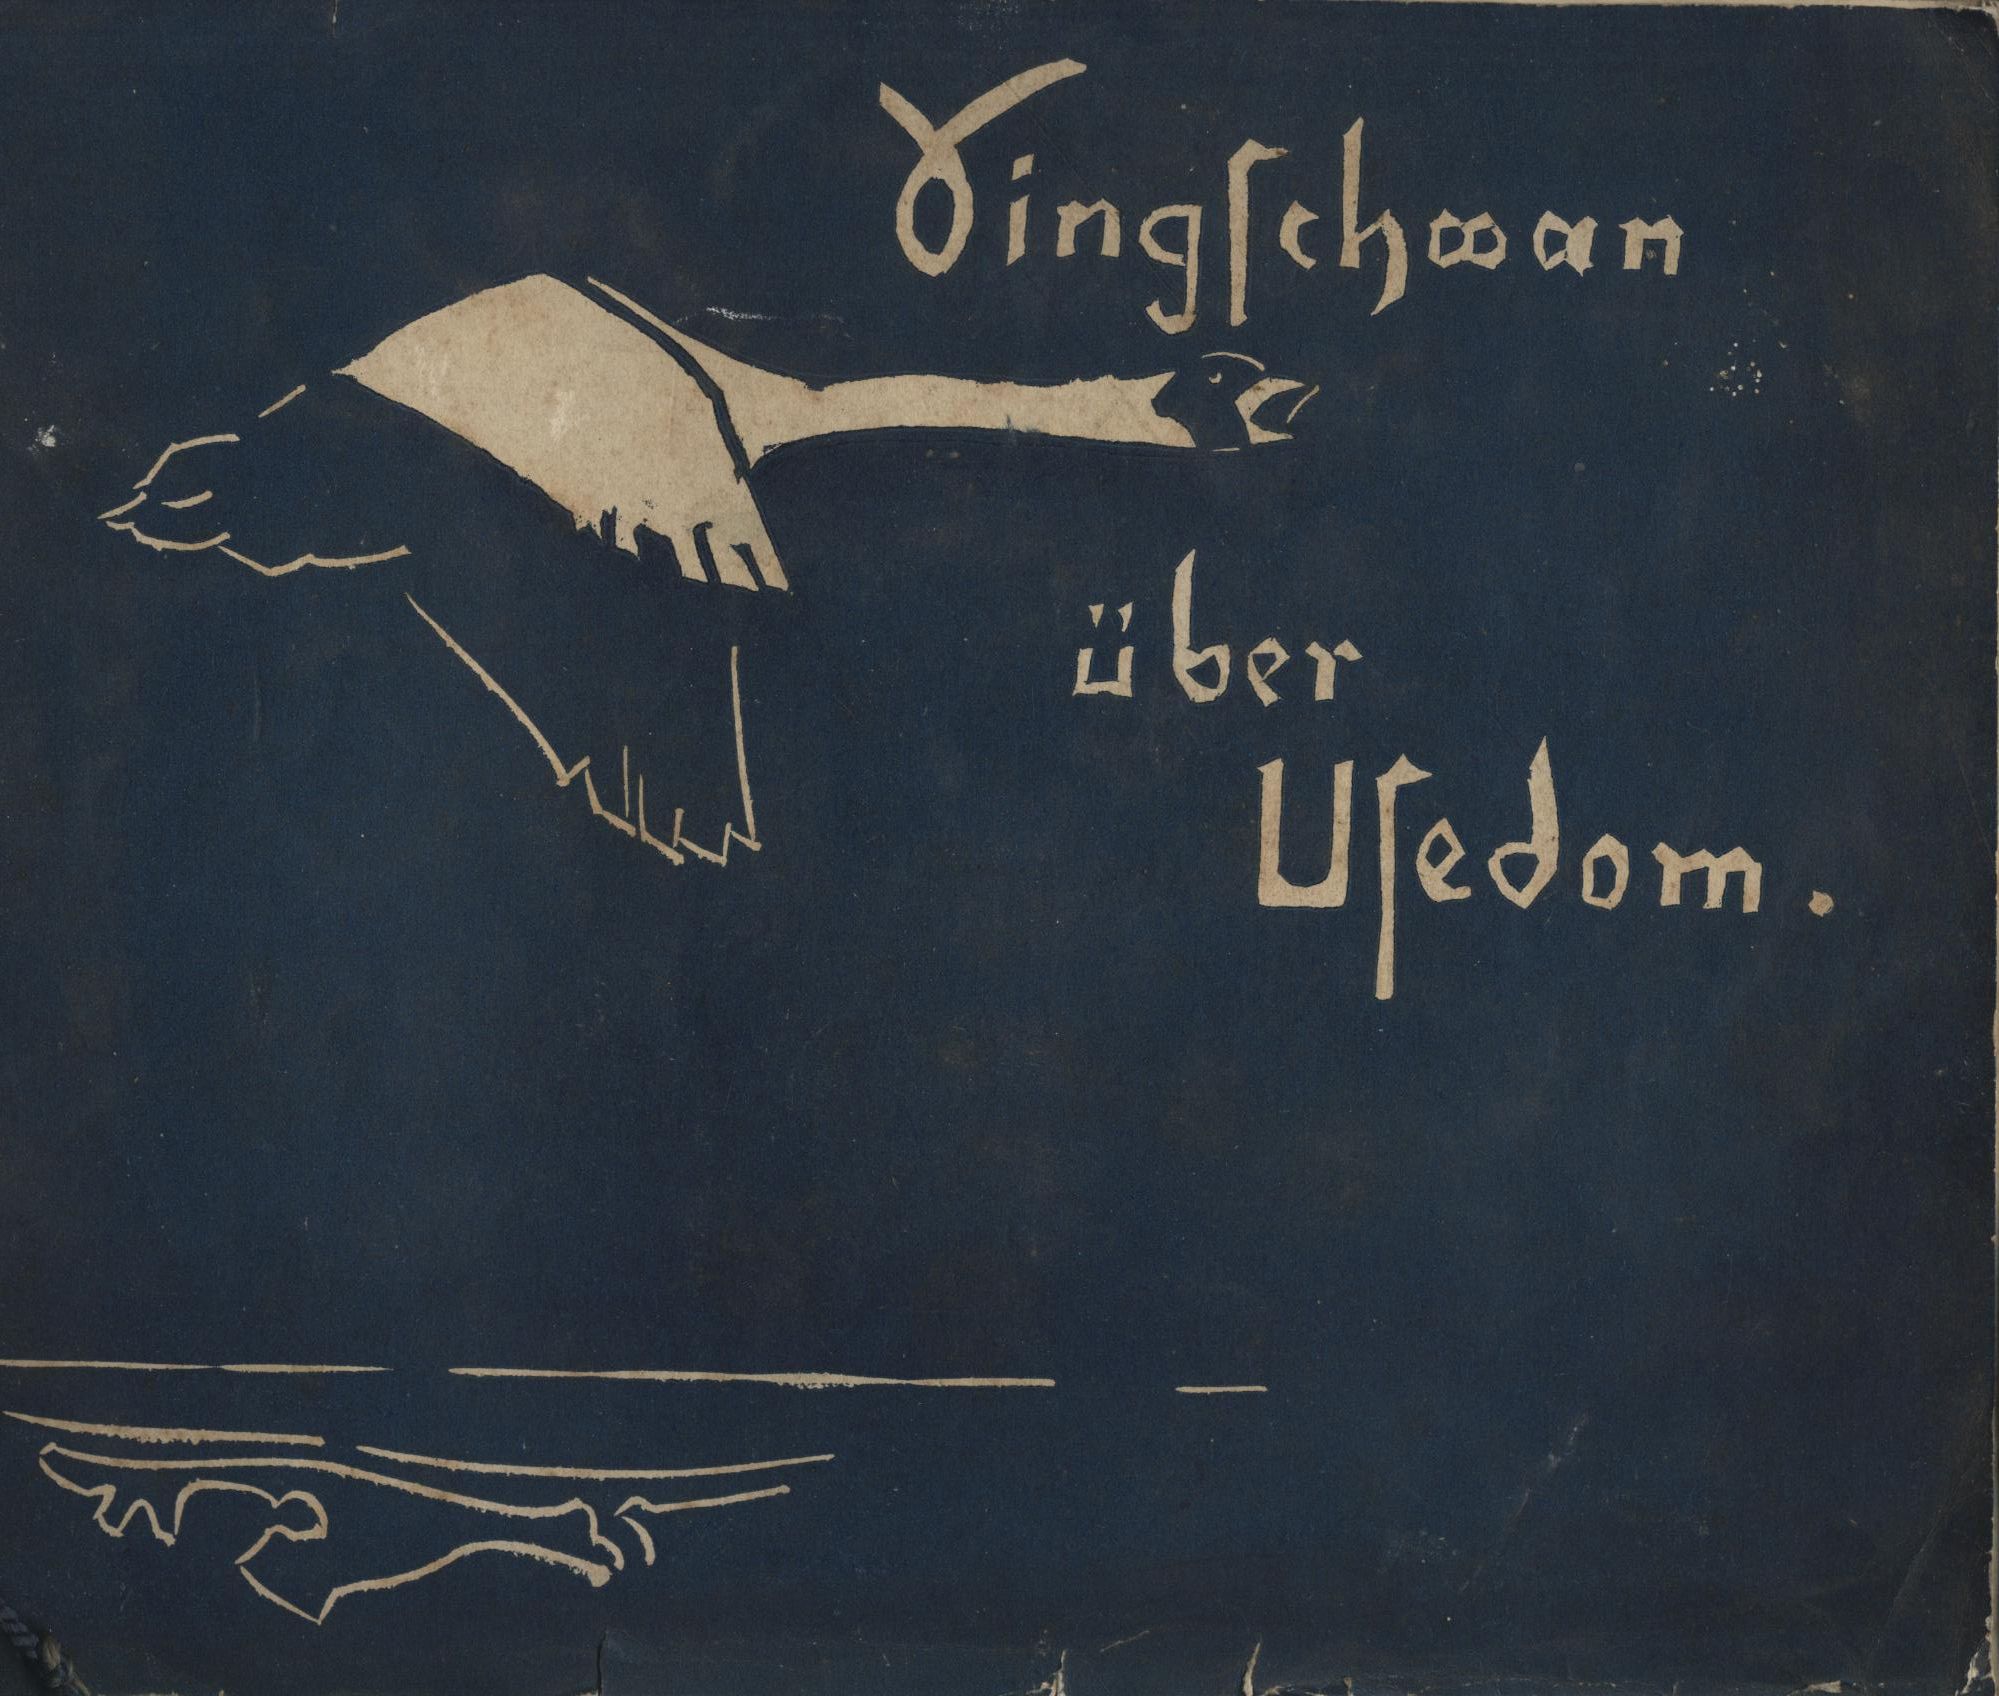 Singſchwan
über
Uſedom.